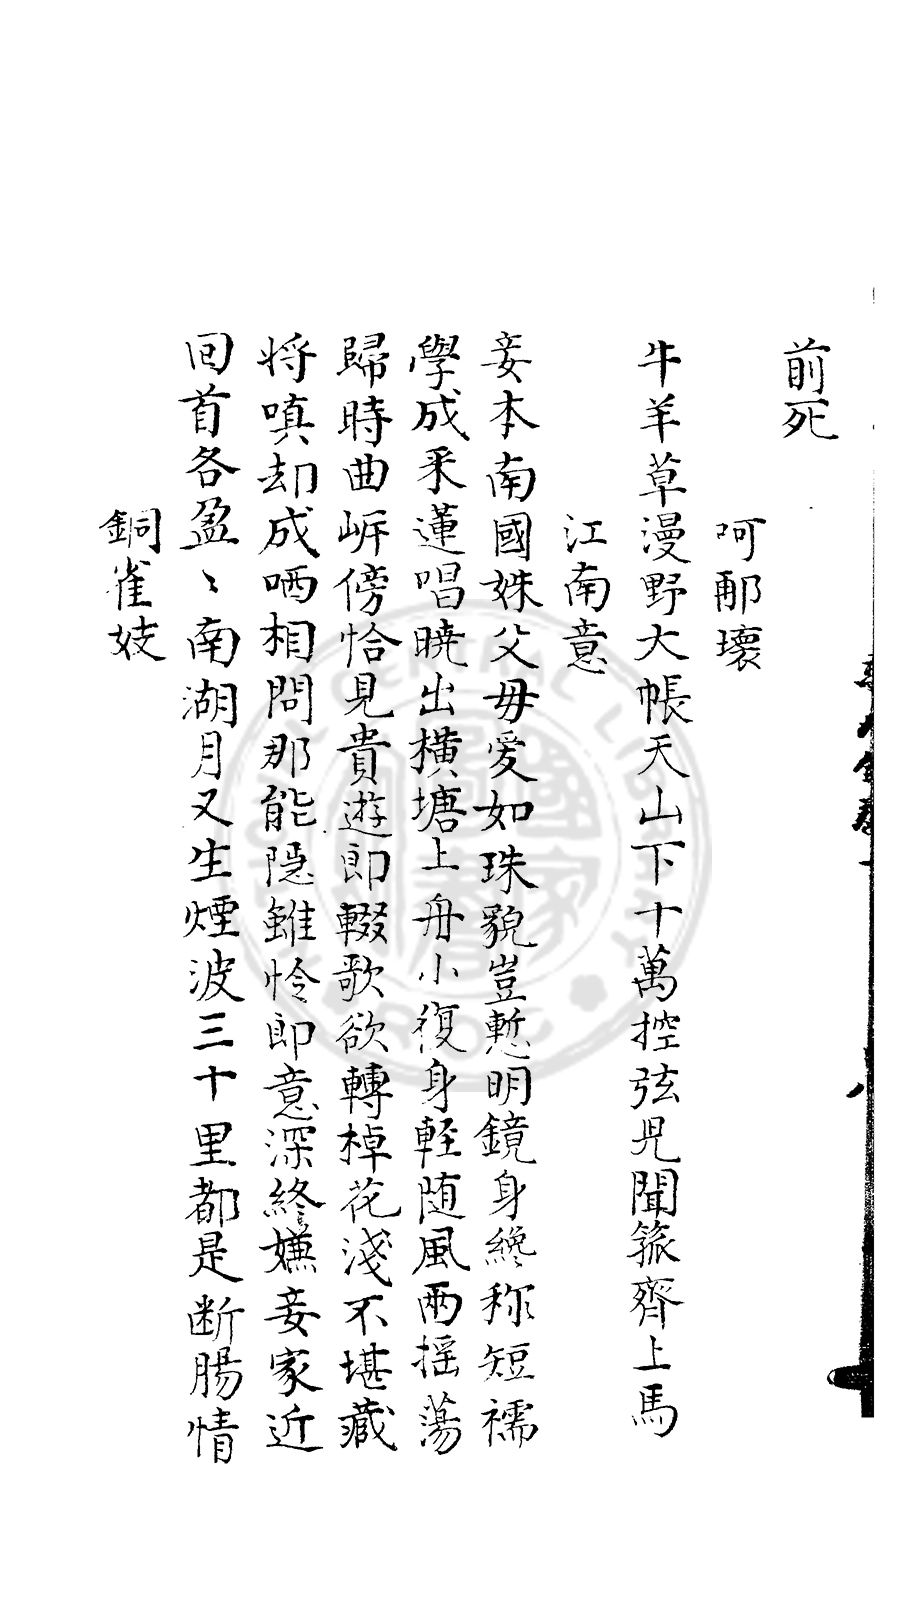 前死
阿那壞
牛羊草漫野大帳天山下十萬控弦児聞箛齊上馬
江南意
妾本南國姝父母愛如珠貌豈慙明鏡身纔称短襦
學成釆蓮唱曉出橫塘上舟小復身軽随風兩揺蕩
歸時曲岍傍恰見貴遊郎輟歌欲轉棹花淺不堪藏
将嗔却成哂相問那能隠雖怜郎意深終嫌妾家近
回首各盈〻南湖月又生煙波三十里都是断腸情
銅雀妓
CENTRAL LIBRARY